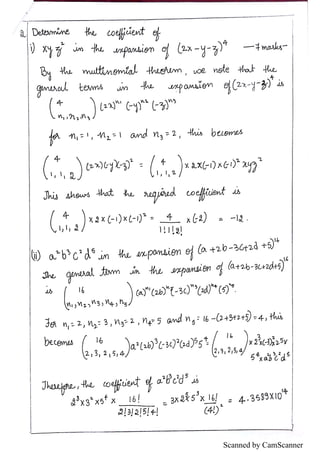 2. Determine the coefficient of
i) xyz² in the expansion of (2x-y-z)⁴ — 7 marks-
By the multinomial theorem, we note that the
general terms in the expansion of (2x-y-z)⁴ is
( 4 / n₁, n₂, n₃ ) (2x)ⁿ¹ (-y)ⁿ² (-z)ⁿ³
for n₁=1, n₂=1 and n₃=2, this becomes
( 4 / 1, 1, 2 ) (2x)(-y)(-z)² = ( 4 / 1, 1, 2 ) x 2x(-1)x(-1)² xyz²
This shows that the required coefficient is
( 4 / 1, 1, 2 ) x 2 x (-1)x(-1)² = 4 / 1!1!2! x (-2) = -12.
(ii) a²b³c²d⁵ in the expansion of (a+2b-3c+2d+5)¹⁶
The general term in the expansion of (a+2b-3c+2d+5)¹⁶
is ( 16 / n₁, n₂, n₃, n₄, n₅ ) (a)ⁿ¹ (2b)ⁿ² (-3c)ⁿ³ (2d)ⁿ⁴ (5)ⁿ⁵.
For n₁=2, n₂=3, n₃=2, n₄=5 and n₅=16-(2+3+2+5)=4, this
becomes ( 16 / 2, 3, 2, 5, 4 ) a²(2b)³(-3c)²(2d)⁵5⁴ = ( 16 / 2, 3, 2, 5, 4 ) x 2³x(-3)²x2⁵x
5⁴xa²b³c²d⁵
Therefore, the coefficient of a²b³c²d⁵ is
16! / 2!3!2!5!4! = 16! / (4!)² = 4.3589x10¹⁴
Scanned by CamScanner